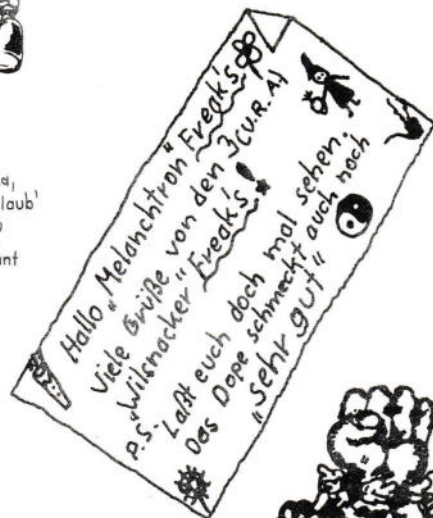 a,
laub'
ant
Hallo „Melanchtron" Freak's
Viele Grüße von den 3 (U.R.A)
„Wilsnacker" Freak's!
P.S. Laßt euch doch mal sehen.
Das Dope schmeckt auch noch
„sehr gut"